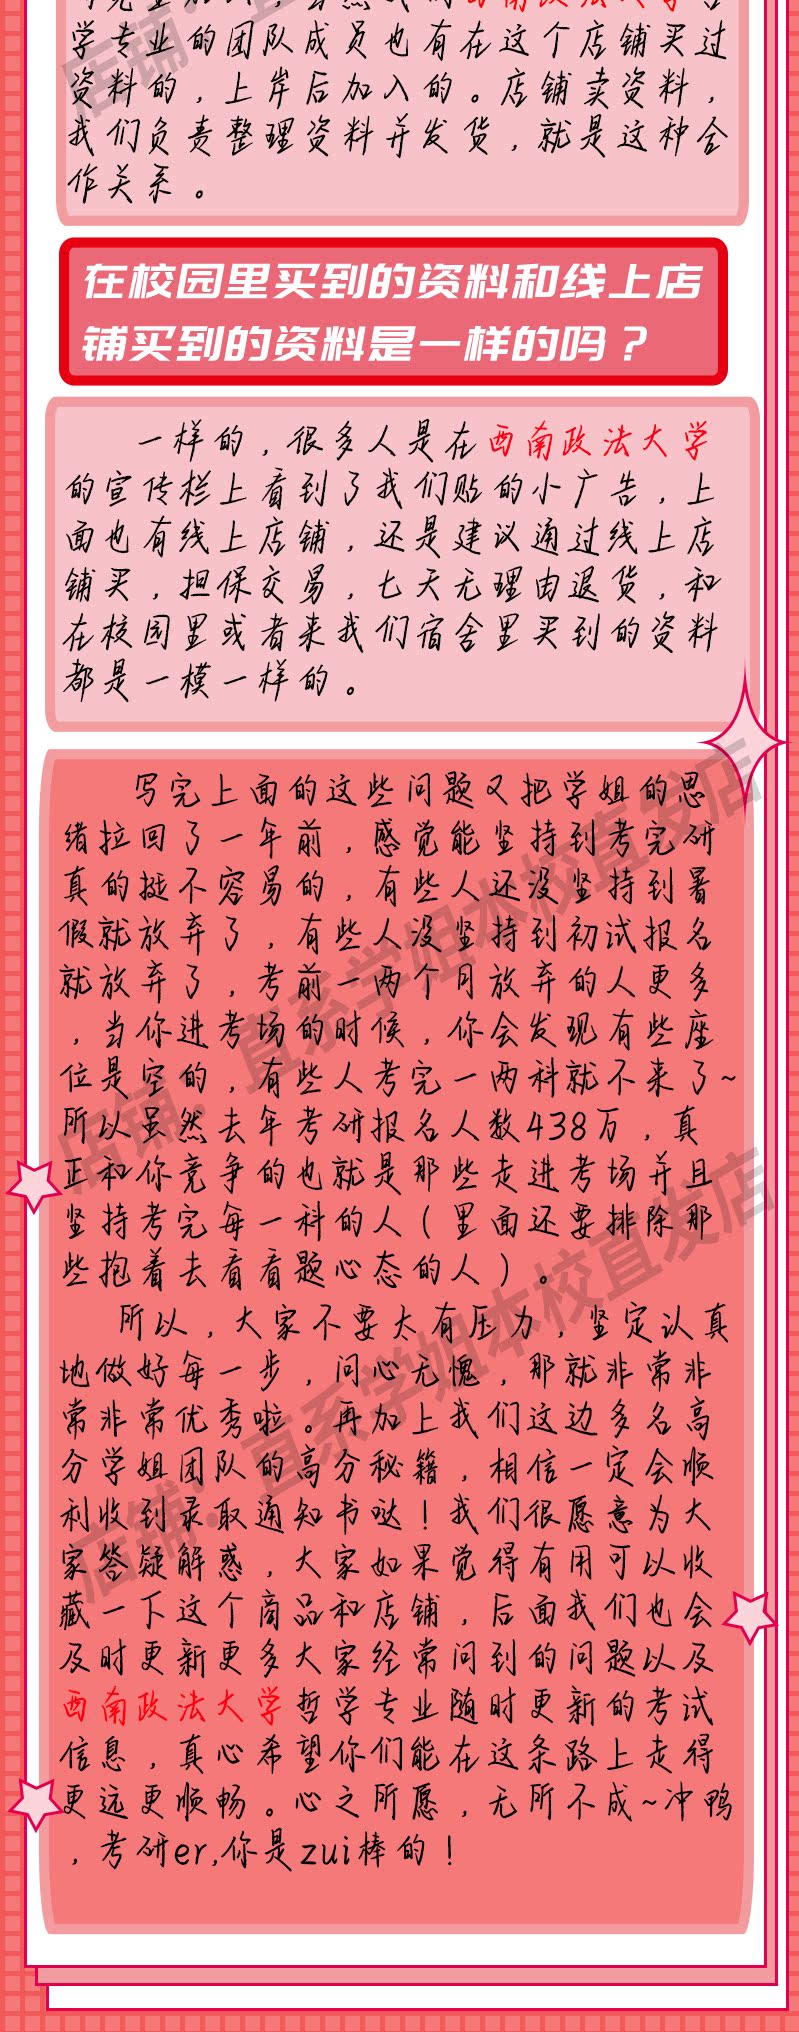 西南政法大学
学专业的团队成员也有在这个店铺买过
资料的，上岸后加入的。店铺卖资料，
我们负责整理资料并发货，就是这种合
作关系。
在校园里买到的资料和线上店
铺买到的资料是一样的吗？
一样的，很多人是在西南政法大学
的宣传栏上看到了我们贴的小广告，上
面也有线上店铺，还是建议通过线上店
铺买，担保交易，七天无理由退货，和
在校园里或者来我们宿舍里买到的资料
都是一模一样的。
写完上面的这些问题又把学姐的思
绪拉回了一年前，感觉能坚持到考完研
真的挺不容易的，有些人还没坚持到暑
假就放弃了，有些人没坚持到初试报名
就放弃了，考前一两个月放弃的人更多
，当你进考场的时候，你会发现有些座
位是空的，有些人考完一两科就不来了~
所以虽然去年考研报名人数438万，真
正和你竞争的也就是那些走进考场并且
坚持考完每一科的人（里面还要排除那
些抱着去看看题心态的人）。
所以，大家不要太有压力，坚定认真
地做好每一步，问心无愧，那就非常非
常非常优秀啦。再加上我们这边多名高
分学姐团队的高分秘籍，相信一定会顺
利收到录取通知书哒！我们很愿意为大
家答疑解惑，大家如果觉得有用可以收
藏一下这个商品和店铺，后面我们也会
及时更新更多大家经常问到的问题以及
西南政法大学哲学专业随时更新的考试
信息，真心希望你们能在这条路上走得
更远更顺畅。心之所愿，无所不成~冲鸭
，考研er,你是zui棒的！
店铺：直系学姐本校直发店
店铺：直系学姐本校直发店